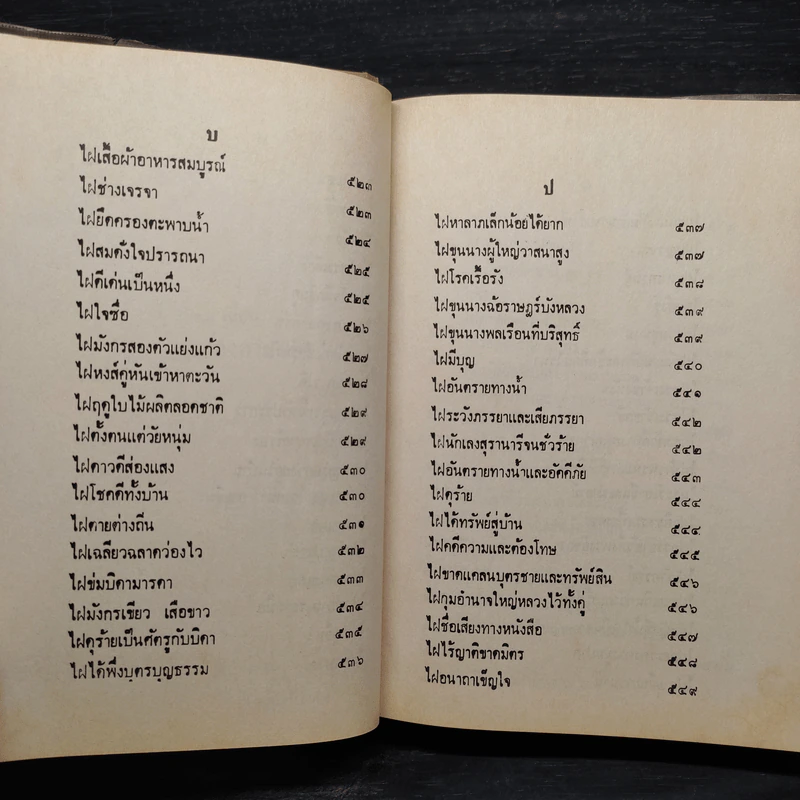 บ
ไฝเสื้อผ้าอาหารสมบูรณ์ ๕๒๓
ไฝช่างเจรจา ๕๒๓
ไฝยึดครองตะพาบน้ำ ๕๒๔
ไฝสมดั่งใจปรารถนา ๕๒๕
ไฝดีเด่นเป็นหนึ่ง ๕๒๕
ไฝใจซื่อ ๕๒๖
ไฝมังกรสองตัวแย่งแก้ว ๕๒๗
ไฝหงส์คู่หันเข้าหาตะวัน ๕๒๘
ไฝฤดูใบไม้ผลิตลอดชาติ ๕๒๙
ไฝตั้งตนแต่วัยหนุ่ม ๕๒๙
ไฝดาวดีส่องแสง ๕๓๐
ไฝโชคดีทั้งบ้าน ๕๓๐
ไฝตายต่างถิ่น ๕๓๑
ไฝเฉลียวฉลาดว่องไว ๕๓๒
ไฝข่มบิดามารดา ๕๓๓
ไฝมังกรเขียว เสือขาว ๕๓๔
ไฝดุร้ายเป็นศัตรูกับบิดา ๕๓๕
ไฝได้พึ่งบุตรบุญธรรม ๕๓๖
ป
ไฝหาลาภเล็กน้อยได้ยาก ๕๓๗
ไฝขุนนางผู้ใหญ่วาสนาสูง ๕๓๗
ไฝโรคเรื้อรัง ๕๓๘
ไฝขุนนางฉ้อราษฎร์บังหลวง ๕๓๙
ไฝขุนนางพลเรือนที่บริสุทธิ์ ๕๓๙
ไฝมีบุญ ๕๔๐
ไฝอันตรายทางน้ำ ๕๔๑
ไฝระวังภรรยาและเสียภรรยา ๕๔๒
ไฝนักเลงสุรานารีจนชั่วร้าย ๕๔๒
ไฝอันตรายทางน้ำและอัคคีภัย ๕๔๓
ไฝดุร้าย ๕๔๔
ไฝได้ทรัพย์สู่บ้าน ๕๔๔
ไฝคดีความและต้องโทษ ๕๔๕
ไฝขาดแคลนบุตรชายและทรัพย์สิน ๕๔๖
ไฝกุมอำนาจใหญ่หลวงไว้ทั้งคู่ ๕๔๖
ไฝชื่อเสียงทางหนังสือ ๕๔๗
ไฝไร้ญาติขาดมิตร ๕๔๘
ไฝอนาถาเข็ญใจ ๕๔๙